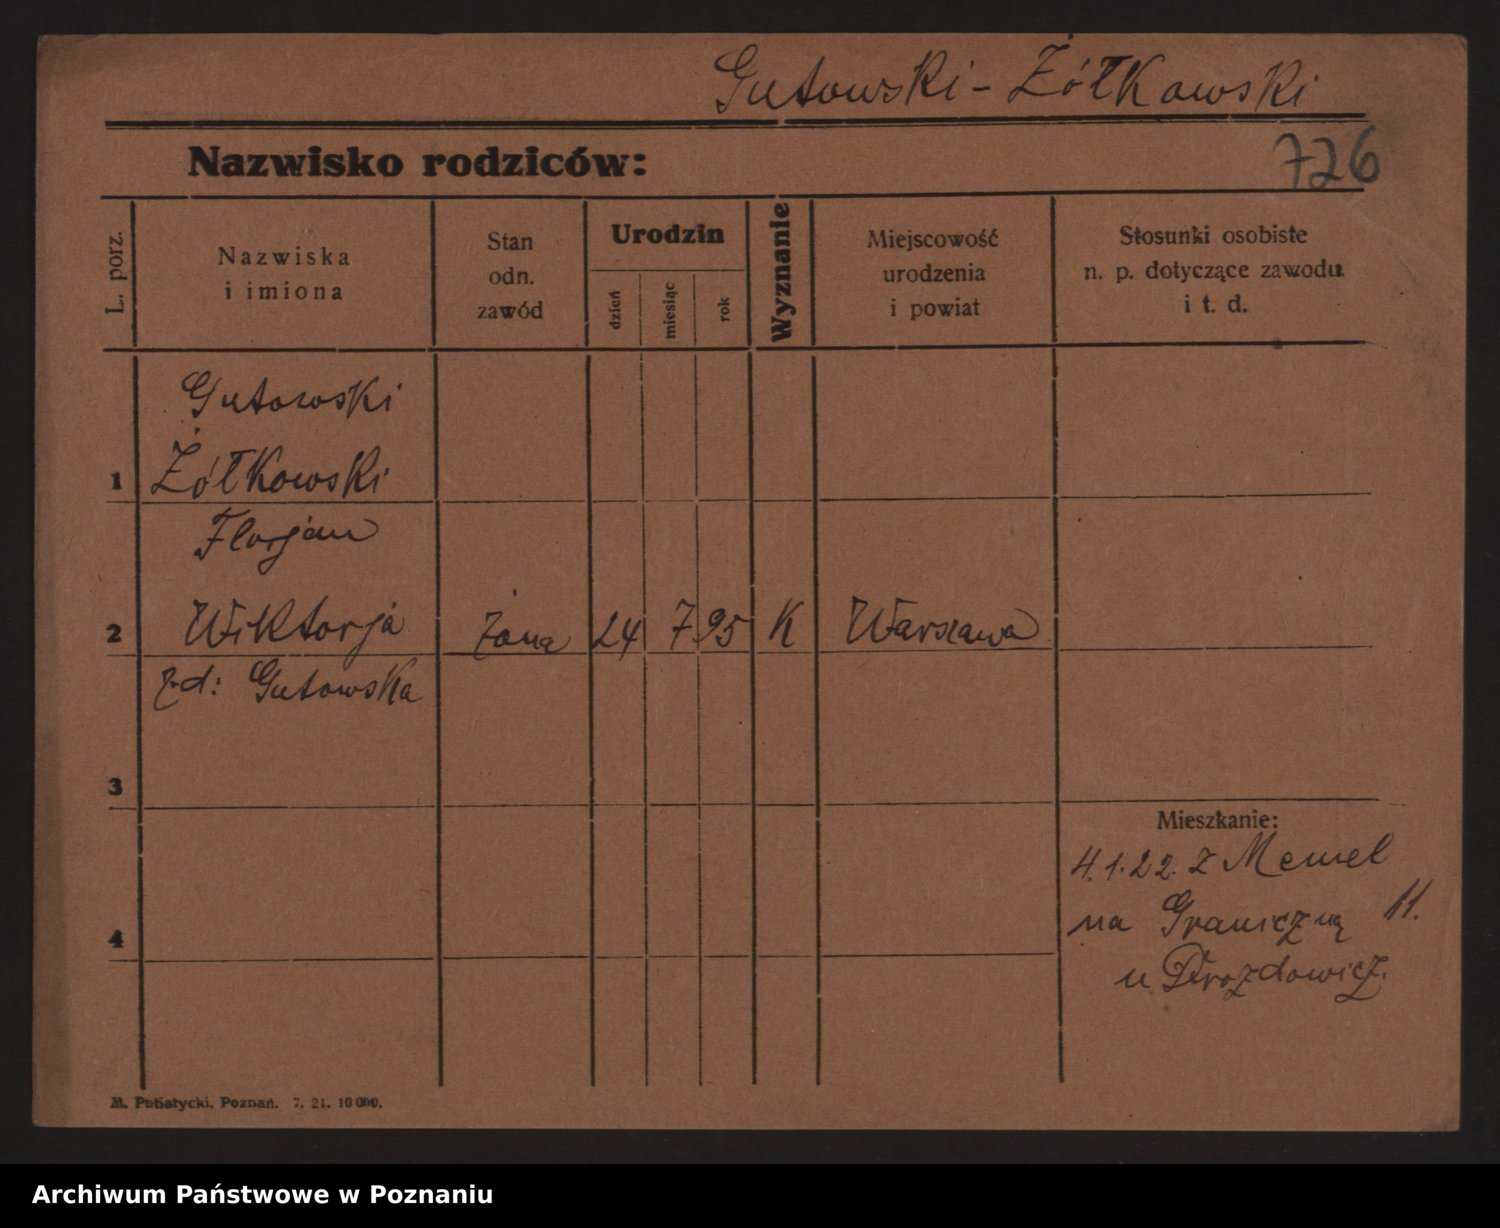 Gutowski - Żółkowski
Nazwisko rodziców:
726
L. porz.
Nazwiska
i imiona
Stan
odn.
zawód
Urodzin
dzień
miesiąc
rok
Wyznanie
Miejscowość
urodzenia
i powiat
Stosunki osobiste
n. p. dotyczące zawodu
i t. d.
Gutowski
1 Żółkowski
Florjan
2 Wiktorja żona 24 7 95 K Warszawa
z d: Gutowska
3
Mieszkanie:
4.1.22. z Memel
na Graniczną 11.
4
u Drozdowicz.
M. Putiatycki, Poznań. 7. 21. 10 000.
Archiwum Państwowe w Poznaniu